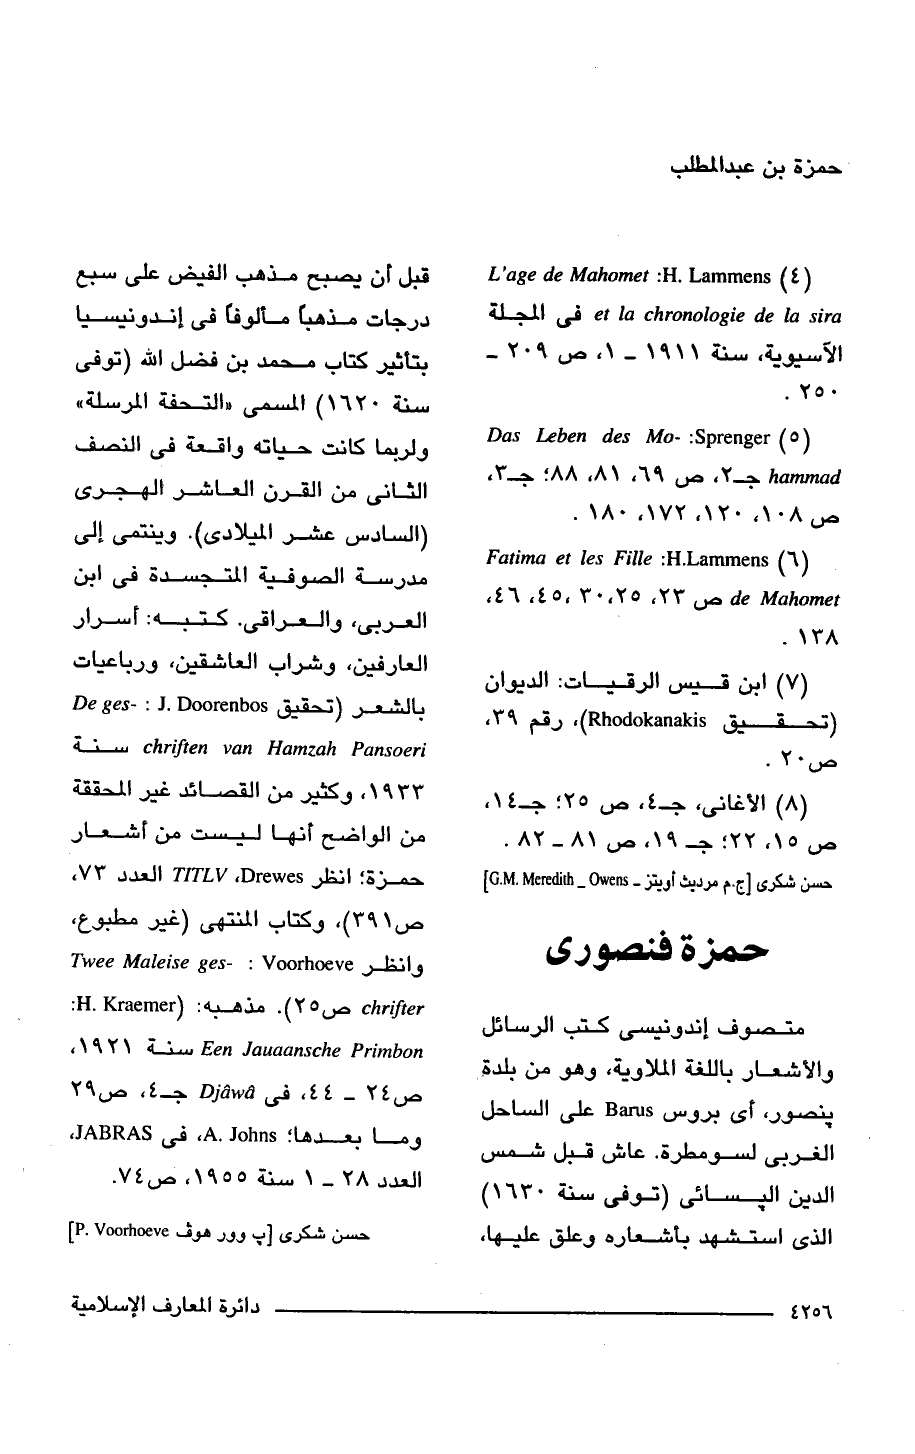 حمزة بن عبدالمطلب
(٤) L'age de Mahomet :H. Lammens
et la chronologie de la sira فى المجلة
الآسيوية، سنة ١٩١١ – ١، ص ٢٠٩ –
٢٥٠ .
(٥) Das Leben des Mo- :Sprenger
hammad جـ٢، ص ٦٩، ٨١، ٨٨؛ جـ٣،
ص ١٠٨، ١٢٠، ١٧٢، ١٨٠ .
(٦) Fatima et les Fille :H.Lammens
de Mahomet ص ٢٣، ٢٥، ٣٠، ٤٥، ٤٦،
١٣٨ .
(٧) ابن قيس الرقيات: الديوان
(تحقيق Rhodokanakis)، رقم ٣٩،
ص٢٠ .
(٨) الأغانى، جـ٤، ص ٢٥؛ جـ١٤،
ص ١٥، ٢٢؛ جـ ١٩، ص ٨١ – ٨٢ .
حسن شكرى [ج.م مرديث أوينز – G.M. Meredith _ Owens]
حمزة فنصورى
متصوف إندونيسى كتب الرسائل
والأشعار باللغة الملاوية، وهو من بلدة
پنصور، أى بروس Barus على الساحل
الغربى لسومطرة. عاش قبل شمس
الدين الپسائى (توفى سنة ١٦٣٠)
الذى استشهد بأشعاره وعلق عليها،
قبل أن يصبح مذهب الفيض على سبع
درجات مذهباً مألوفاً فى إندونيسيا
بتأثير كتاب محمد بن فضل الله (توفى
سنة ١٦٢٠) المسمى «التحفة المرسلة»
ولربما كانت حياته واقعة فى النصف
الثانى من القرن العاشر الهجرى
(السادس عشر الميلادى). وينتمى إلى
مدرسة الصوفية المتجسدة فى ابن
العربى، والعراقى. كتبه: أسرار
العارفين، وشراب العاشقين، ورباعيات
بالشعر (تحقيق De ges- : J. Doorenbos
chriften van Hamzah Pansoeri سنة
١٩٣٣، وكثير من القصائد غير المحققة
من الواضح أنها ليست من أشعار
حمزة؛ انظر Drewes، TITLV العدد ٧٣،
ص٣٩١)، وكتاب المنتهى (غير مطبوع،
وانظر Twee Maleise ges- : Voorhoeve
chrifter ص٢٥). مذهبه: (H. Kraemer:
Een Jauaansche Primbon سنة ١٩٢١،
ص٢٤ – ٤٤، فى Djâwâ جـ٤، ص٢٩
وما بعدها؛ A. Johns، فى JABRAS،
العدد ٢٨ – ١ سنة ١٩٥٥، ص٧٤.
حسن شكرى [پ وور هوڤ P. Voorhoeve]
٤٢٥٦ دائرة المعارف الإسلامية